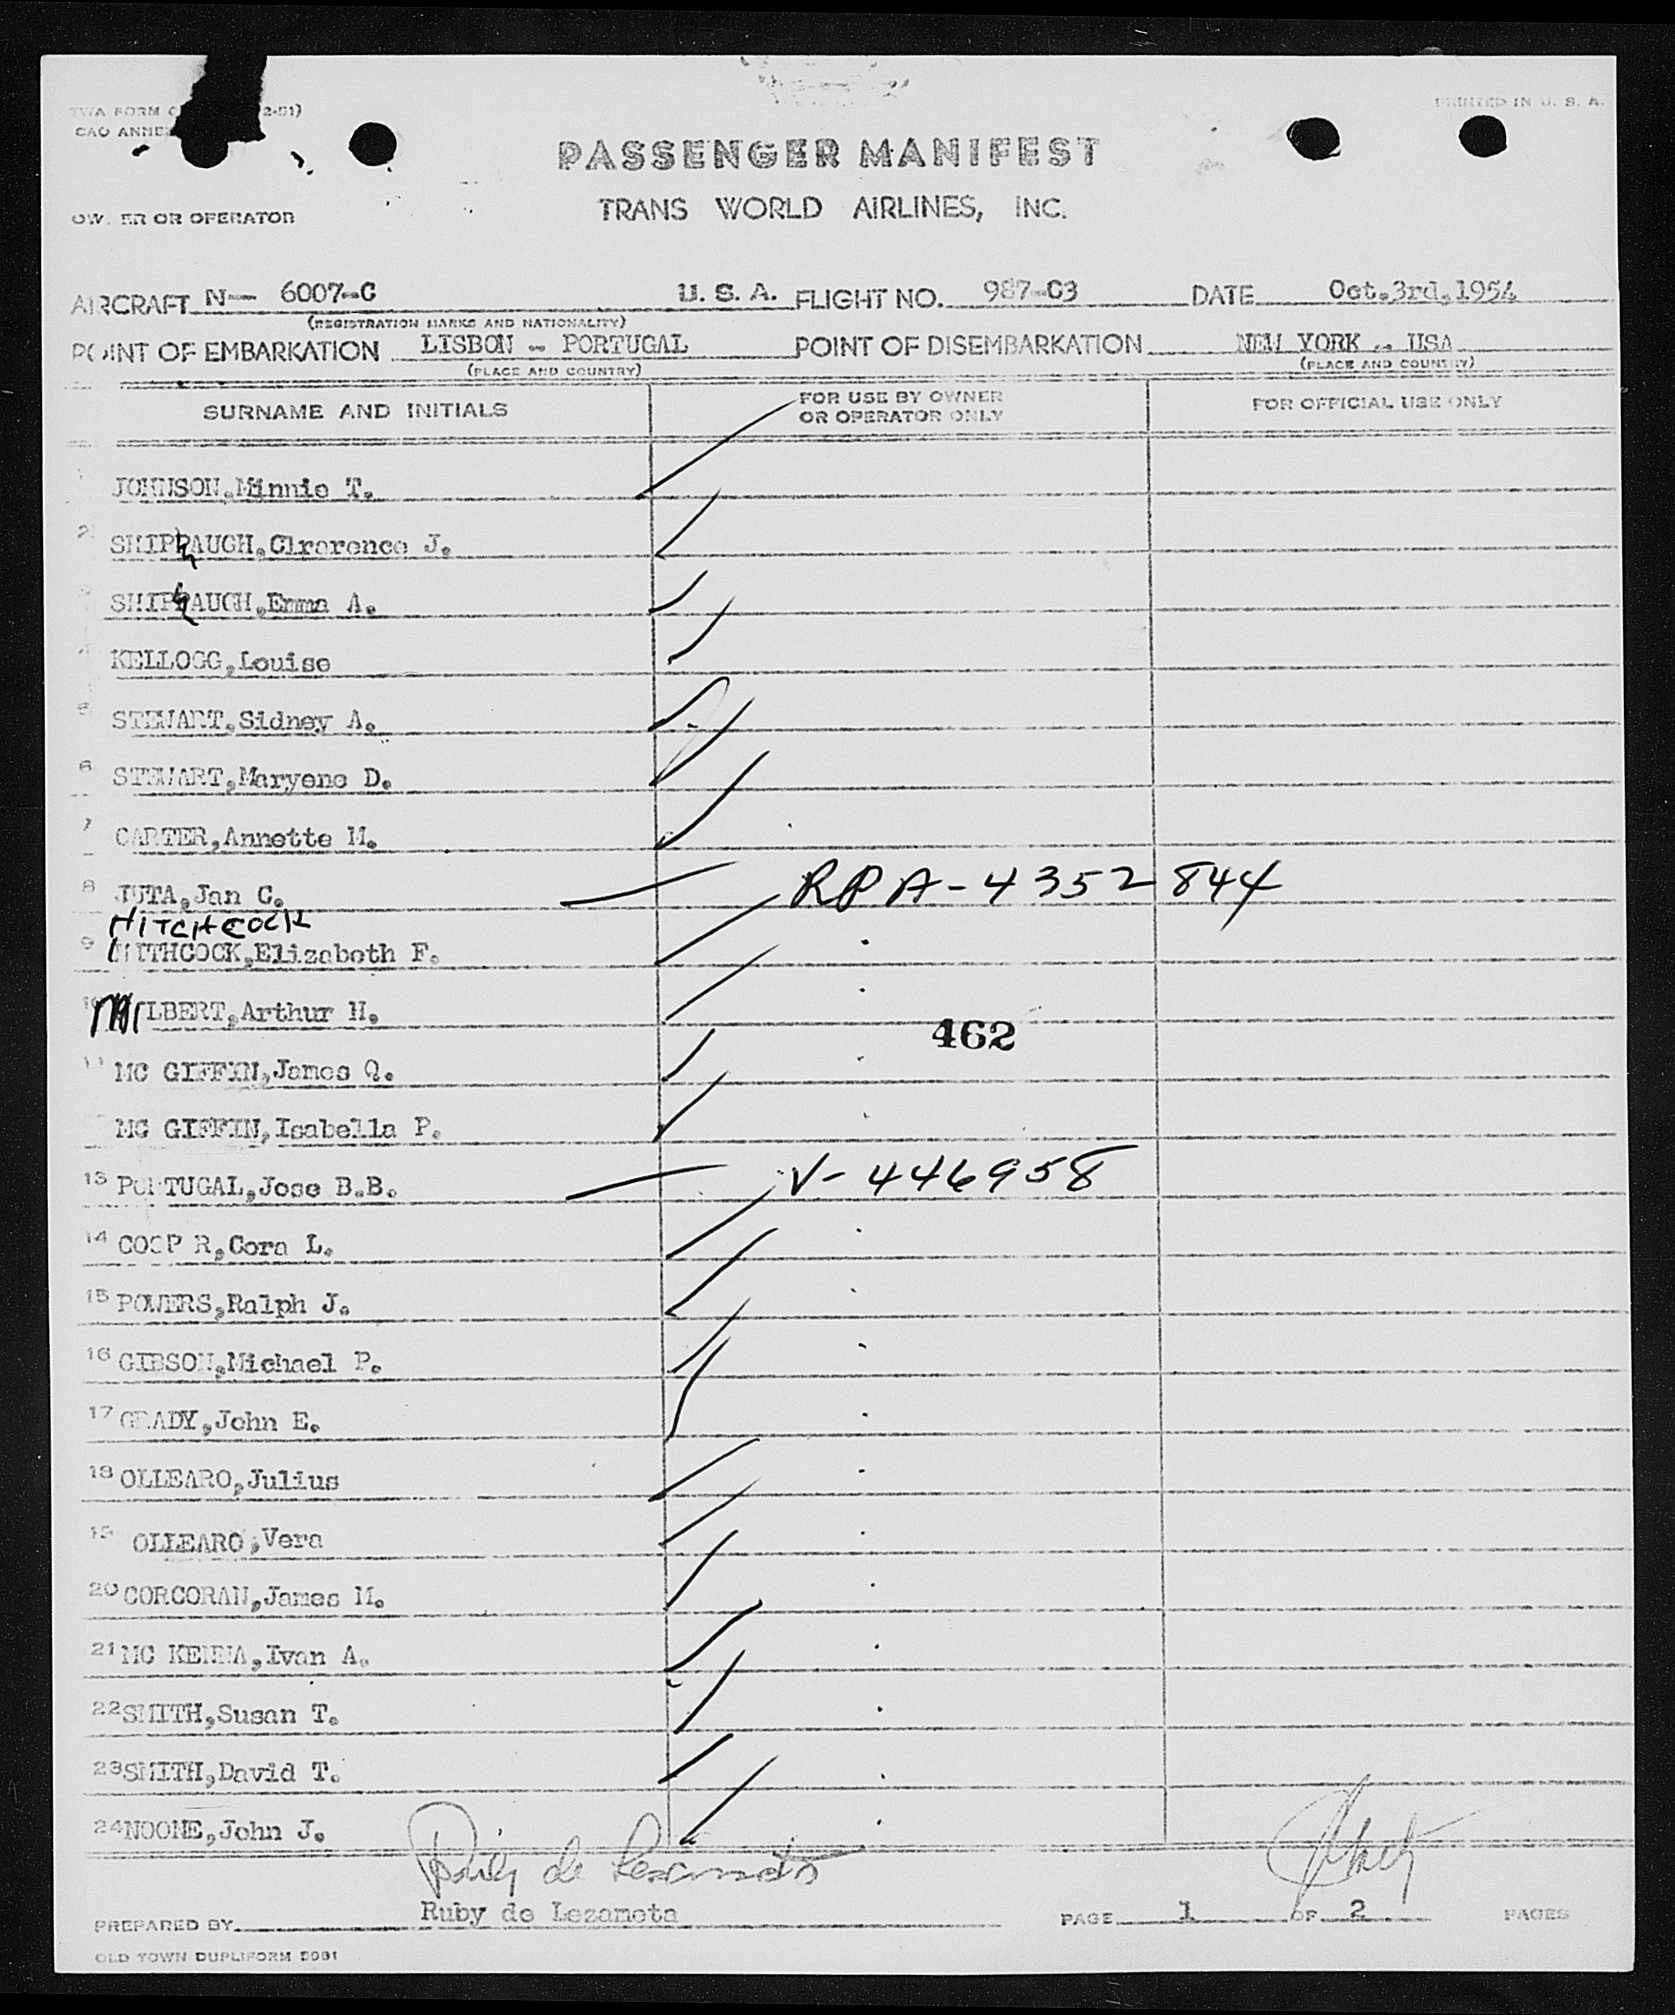 TWA FORM 2-51)
CAO ANNE
PRINTED IN U. S. A.
PASSENGER MANIFEST
OWNER OR OPERATOR TRANS WORLD AIRLINES, INC.
AIRCRAFT N-- 6007-C U. S. A. FLIGHT NO. 987-03 DATE Oct.3rd,1954
(REGISTRATION MARKS AND NATIONALITY)
POINT OF EMBARKATION LISBON - PORTUGAL POINT OF DISEMBARKATION NEW YORK - USA
(PLACE AND COUNTRY) (PLACE AND COUNTRY)
SURNAME AND INITIALS FOR USE BY OWNER OR OPERATOR ONLY FOR OFFICIAL USE ONLY
JOHNSON,Minnie T.
2 SHIPHAUGH,Clrarence J.
SHIPHAUGH,Emma A.
4 KELLOGG,Louise
5 STEWART,Sidney A.
6 STEWART,Maryene D.
7 CARTER,Annette M.
8 JUTA,Jan C. RPA-4352844
HITCHCOCK
9 HITHCOCK,Elizabeth F.
10 MILBERT,Arthur H.
462
11 MC GIFFIN,James Q.
MC GIFFIN,Isabella P.
13 PORTUGAL,Jose B.B. V-446958
14 COOP R,Cora L.
15 POWERS,Ralph J.
16 GIBSON,Michael P.
17 GRADY,John E.
18 OLLEARO,Julius
19 OLLEARO,Vera
20 CORCORAN,James M.
21 MC KENNA,Ivan A.
22 SMITH,Susan T.
23 SMITH,David T.
24 NOONE,John J.
Ruby de Lezameta
PREPARED BY Ruby de Lezameta PAGE 1 OF 2 PAGES
OLD TOWN DUPLIFORM 5081